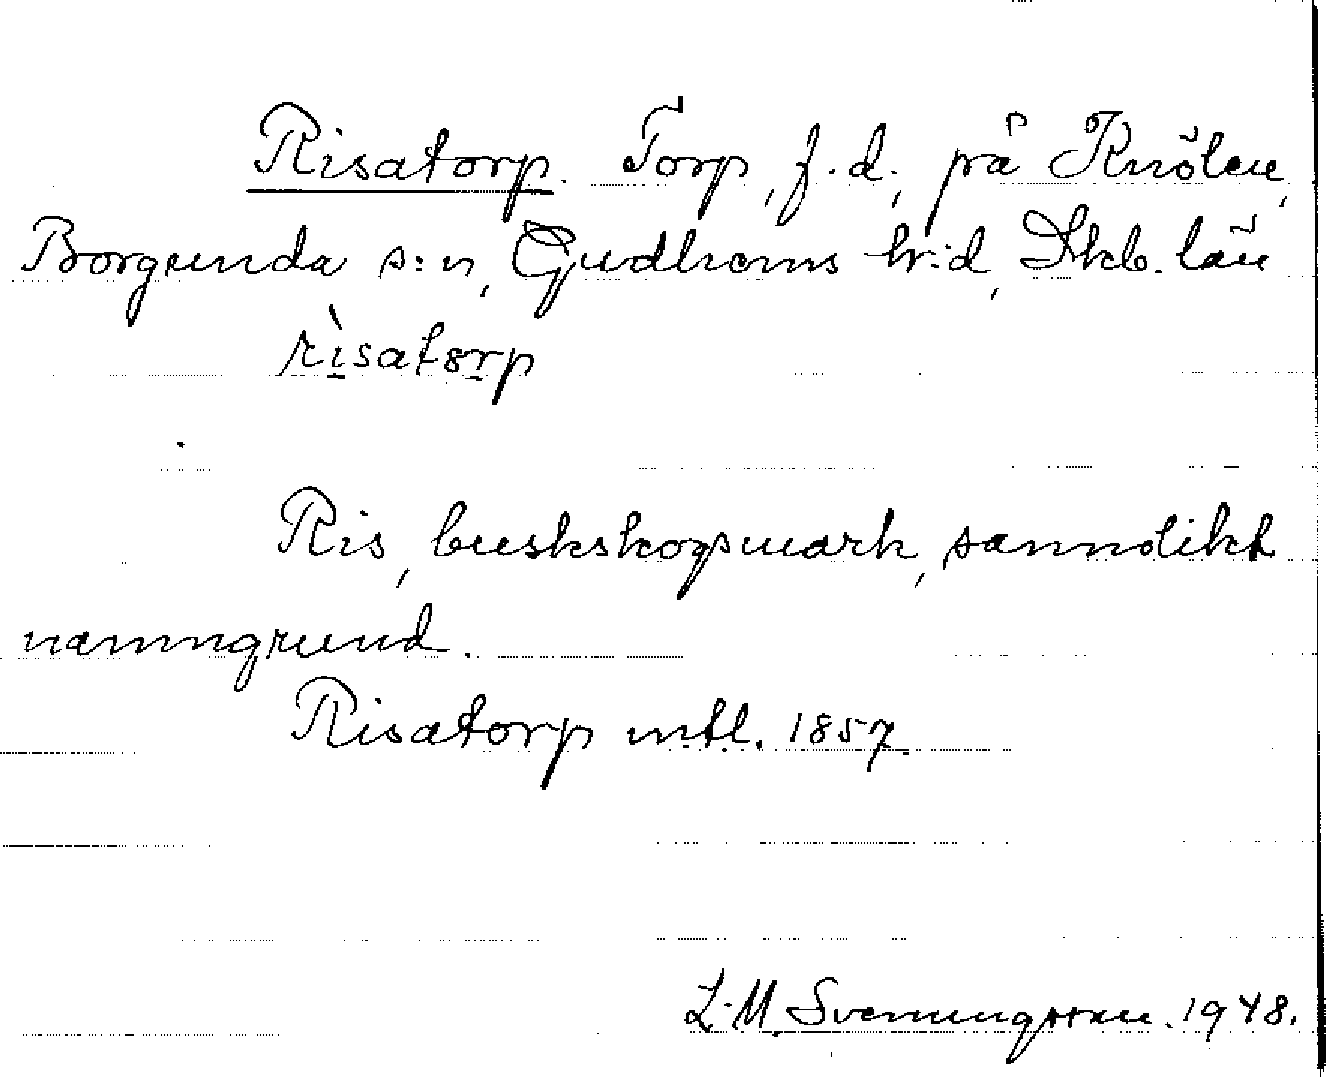 Risatorp. Torp, f.d., på Knölen,
Borgunda s:n, Gudhems h:d, Skb. län
rìsatorp
Ris, buskskogsmark, sannolikt
namngrund.
Risatorp mtl. 1857.
L-M. Svenungsson. 1948.